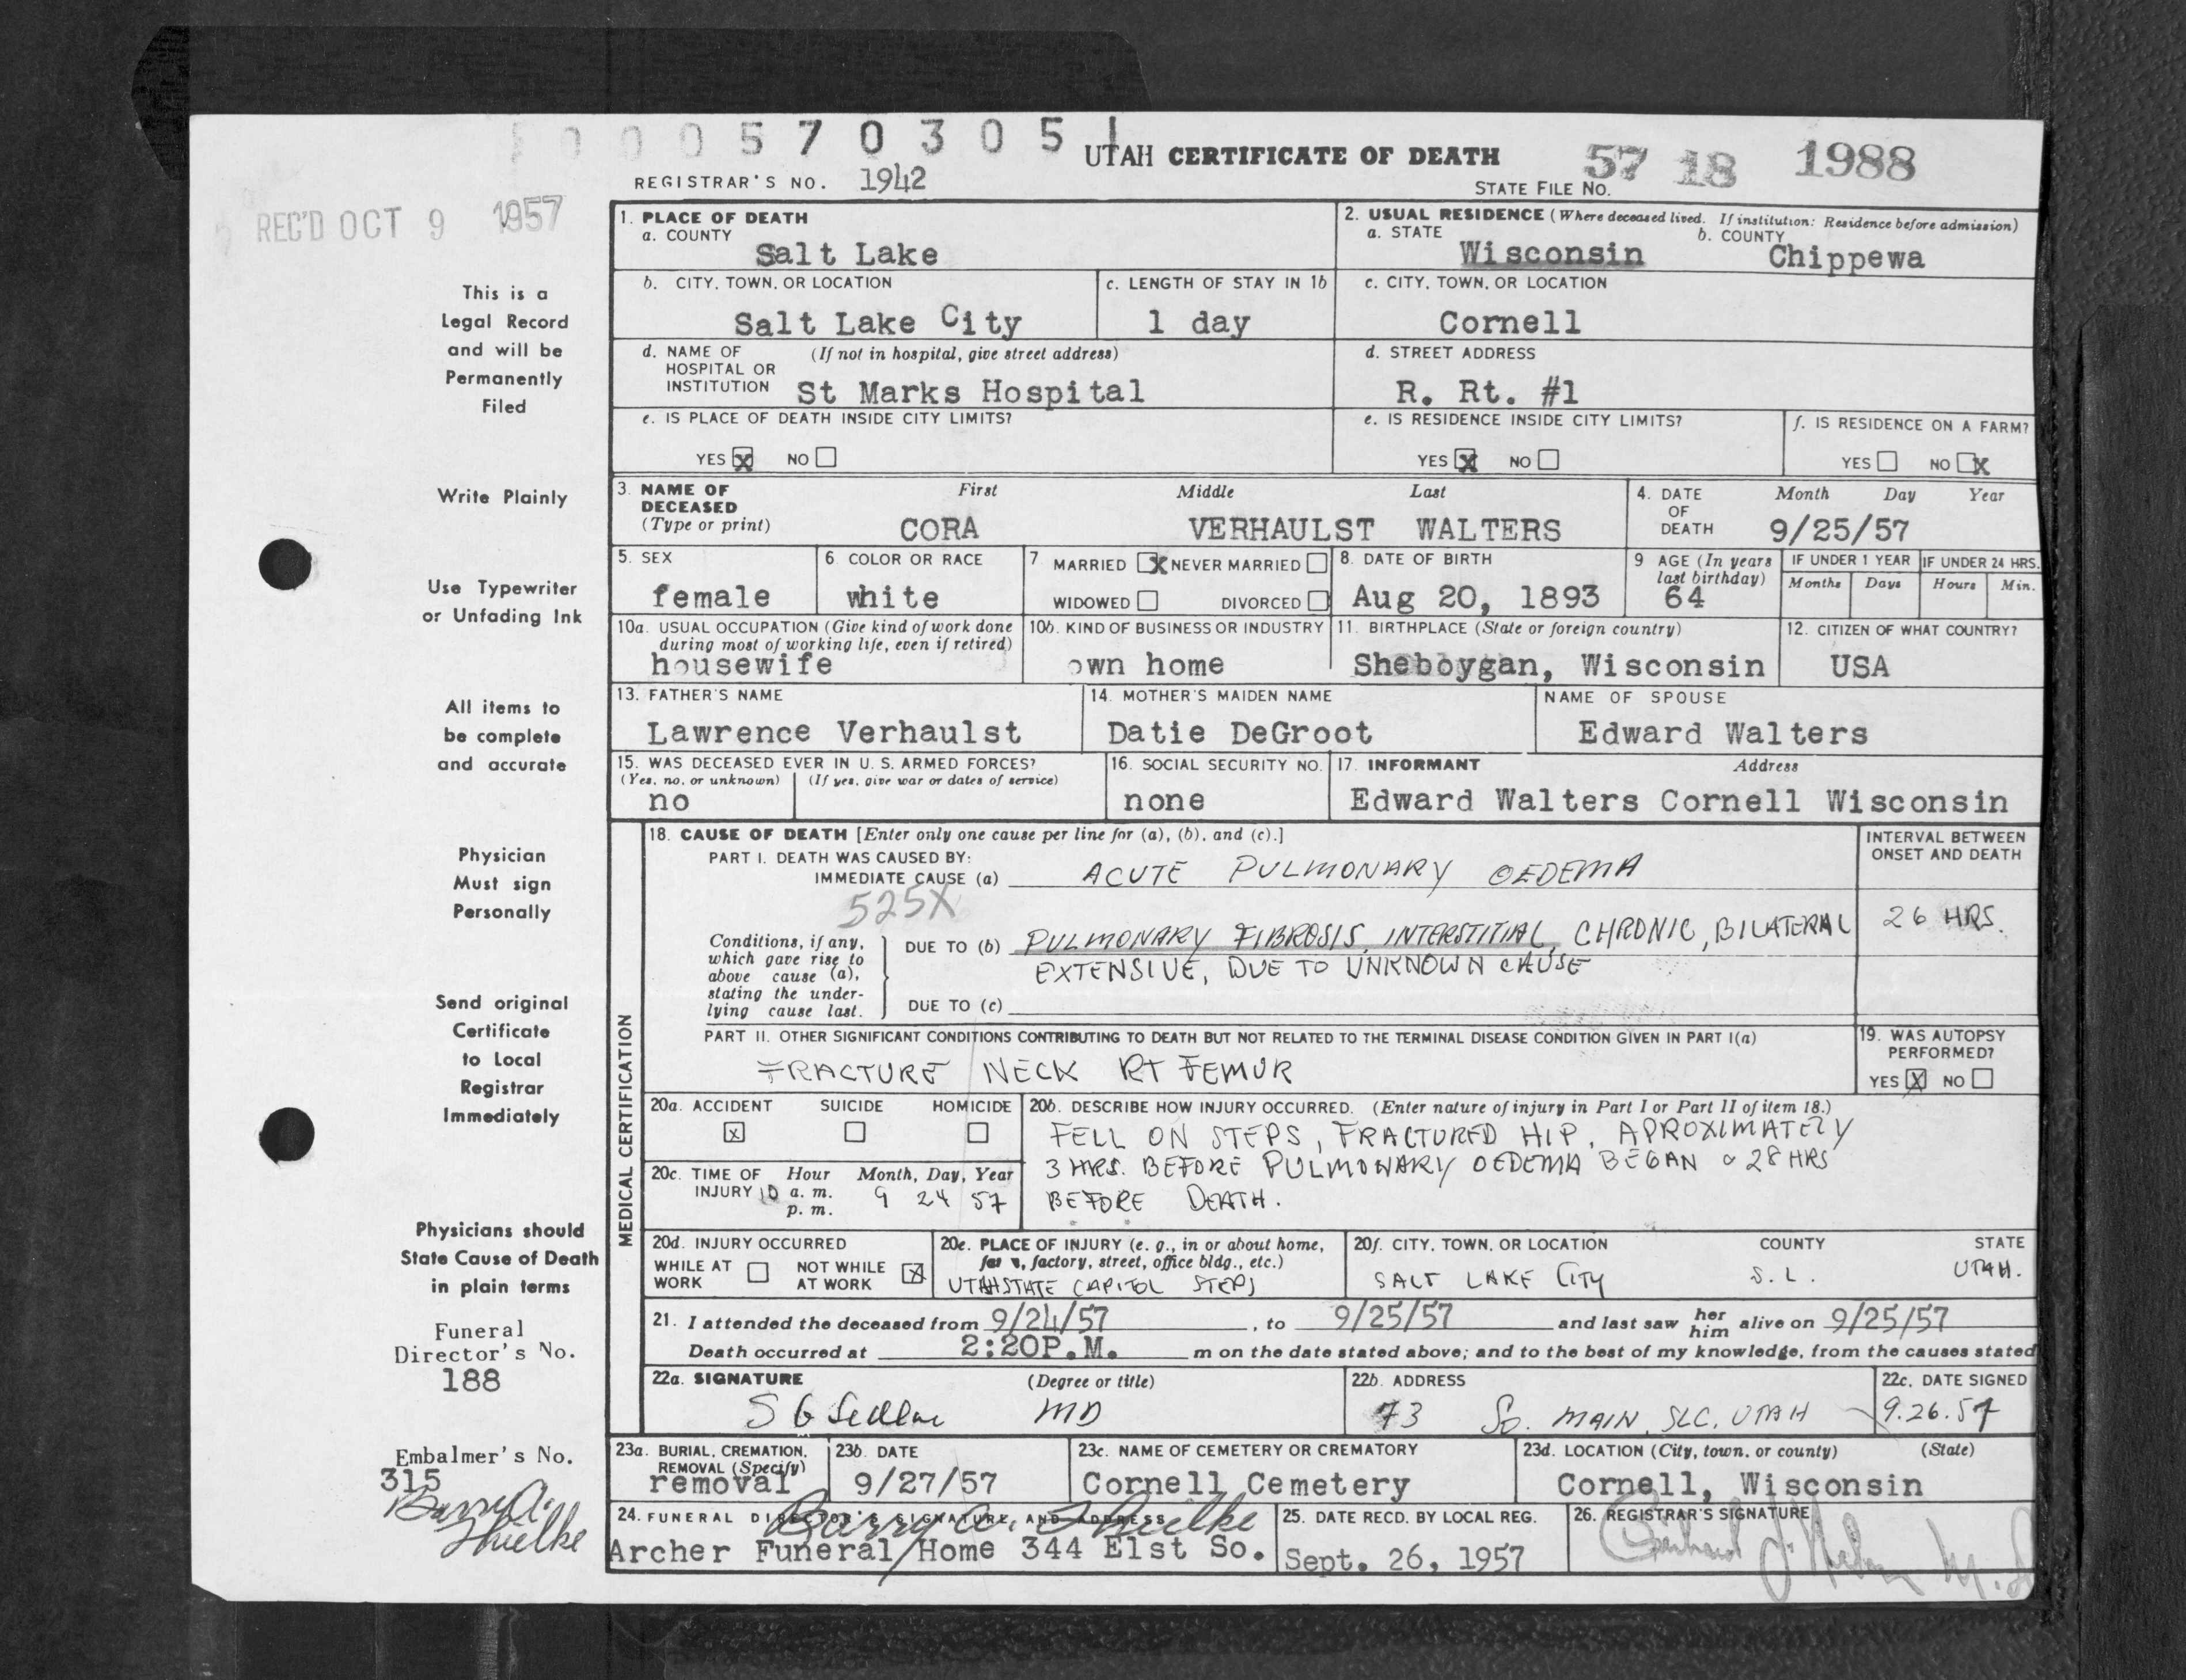 0 0 0 5 7 0 3 0 5 1
UTAH CERTIFICATE OF DEATH
57 18 1988
REGISTRAR'S NO. 1942
STATE FILE NO.
REC'D OCT 9 1957
This is a
Legal Record
and will be
Permanently
Filed
Write Plainly
Use Typewriter
or Unfading Ink
All items to
be complete
and accurate
Physician
Must sign
Personally
Send original
Certificate
to Local
Registrar
Immediately
Physicians should
State Cause of Death
in plain terms
Funeral
Director's No.
188
Embalmer's No.
315
Barry A.
Thielke
1. PLACE OF DEATH
a. COUNTY
Salt Lake
2. USUAL RESIDENCE (Where deceased lived. If institution: Residence before admission)
a. STATE b. COUNTY
Wisconsin Chippewa
b. CITY, TOWN, OR LOCATION
Salt Lake City
c. LENGTH OF STAY IN 1b
1 day
c. CITY, TOWN, OR LOCATION
Cornell
d. NAME OF (If not in hospital, give street address)
HOSPITAL OR
INSTITUTION St Marks Hospital
d. STREET ADDRESS
R. Rt. #1
e. IS PLACE OF DEATH INSIDE CITY LIMITS?
YES X NO
e. IS RESIDENCE INSIDE CITY LIMITS?
YES X NO
f. IS RESIDENCE ON A FARM?
YES NO X
3. NAME OF First Middle Last
DECEASED
(Type or print) CORA VERHAULST WALTERS
4. DATE Month Day Year
OF
DEATH 9/25/57
5. SEX
female
6 COLOR OR RACE
white
7 MARRIED X NEVER MARRIED
WIDOWED DIVORCED
8. DATE OF BIRTH
Aug 20, 1893
9 AGE (In years
last birthday)
64
IF UNDER 1 YEAR IF UNDER 24 HRS.
Months Days Hours Min.
10a. USUAL OCCUPATION (Give kind of work done
during most of working life, even if retired)
housewife
10b. KIND OF BUSINESS OR INDUSTRY
own home
11. BIRTHPLACE (State or foreign country)
Sheboygan, Wisconsin
12. CITIZEN OF WHAT COUNTRY?
USA
13. FATHER'S NAME
Lawrence Verhaulst
14. MOTHER'S MAIDEN NAME
Datie DeGroot
NAME OF SPOUSE
Edward Walters
15. WAS DECEASED EVER IN U. S. ARMED FORCES?
(Yes, no, or unknown) (If yes, give war or dates of service)
no
16. SOCIAL SECURITY NO.
none
17. INFORMANT Address
Edward Walters Cornell Wisconsin
MEDICAL CERTIFICATION
18. CAUSE OF DEATH [Enter only one cause per line for (a), (b), and (c).]
PART I. DEATH WAS CAUSED BY:
IMMEDIATE CAUSE (a) ACUTE PULMONARY OEDEMA
INTERVAL BETWEEN
ONSET AND DEATH
26 HRS.
525X
Conditions, if any,
which gave rise to
above cause (a),
stating the under-
lying cause last.
DUE TO (b) PULMONARY FIBROSIS, INTERSTITIAL, CHRONIC, BILATERAL
EXTENSIVE, DUE TO UNKNOWN CAUSE
DUE TO (c)
PART II. OTHER SIGNIFICANT CONDITIONS CONTRIBUTING TO DEATH BUT NOT RELATED TO THE TERMINAL DISEASE CONDITION GIVEN IN PART I(a)
FRACTURE NECK RT FEMUR
19. WAS AUTOPSY
PERFORMED?
YES X NO
20a. ACCIDENT SUICIDE HOMICIDE
X
20b. DESCRIBE HOW INJURY OCCURRED. (Enter nature of injury in Part I or Part II of item 18.)
FELL ON STEPS, FRACTURED HIP, APROXIMATELY
3 HRS. BEFORE PULMONARY OEDEMA BEGAN & 28 HRS
BEFORE DEATH.
20c. TIME OF Hour Month, Day, Year
INJURY 10 a. m. 9 24 57
p. m.
20d. INJURY OCCURRED
WHILE AT NOT WHILE X
WORK AT WORK
20e. PLACE OF INJURY (e. g., in or about home,
farm, factory, street, office bldg., etc.)
UTAH STATE CAPITOL STEPS
20f. CITY, TOWN, OR LOCATION COUNTY STATE
SALT LAKE CITY S. L. UTAH.
21. I attended the deceased from 9/24/57, to 9/25/57 and last saw her him alive on 9/25/57
Death occurred at 2:20P.M. m on the date stated above; and to the best of my knowledge, from the causes stated
22a. SIGNATURE (Degree or title)
S G MD
22b. ADDRESS
73 So. MAIN, SLC, UTAH
22c. DATE SIGNED
9.26.57
23a. BURIAL, CREMATION,
REMOVAL (Specify)
removal
23b. DATE
9/27/57
23c. NAME OF CEMETERY OR CREMATORY
Cornell Cemetery
23d. LOCATION (City, town, or county) (State)
Cornell, Wisconsin
24. FUNERAL DIRECTOR'S SIGNATURE AND ADDRESS
Barry A. Thielke
Archer Funeral Home 344 E1st So.
25. DATE RECD. BY LOCAL REG.
Sept. 26, 1957
26. REGISTRAR'S SIGNATURE
M.D.